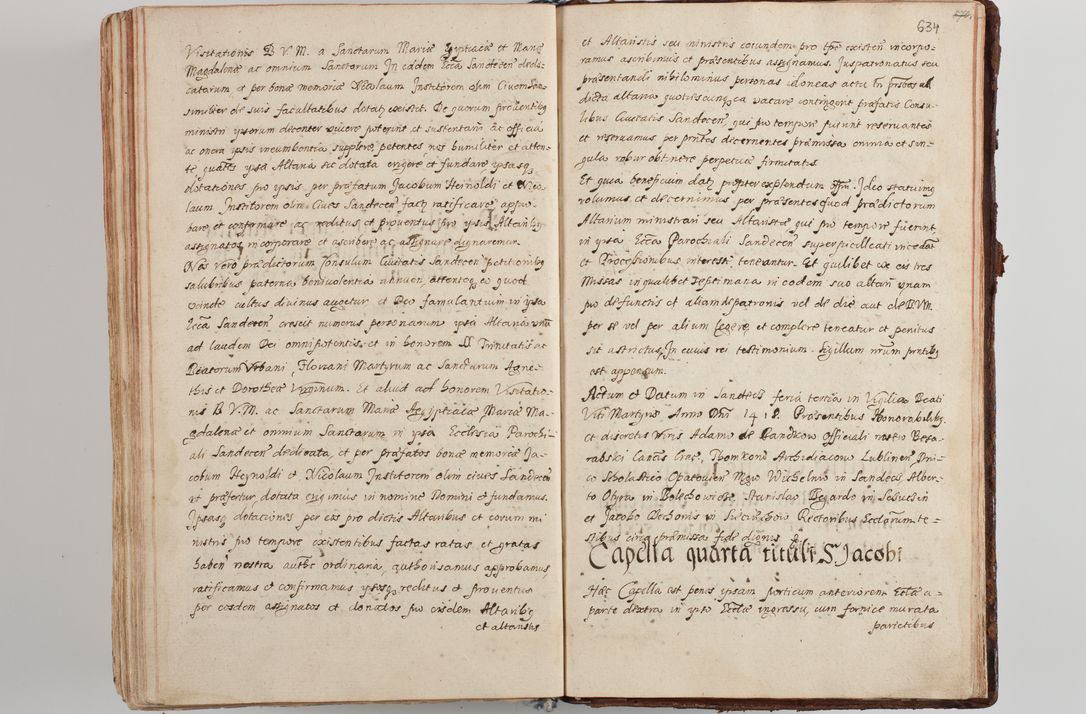 Visitationis B V. M. a Sanctarum Mariæ Egiptiacæ et Mariæ
Magdalenæ ac omnium Sanctarum In eadem Eccã Sandecen dedi-
catarum et per bonæ memoriæ Nicolaum Institorem olim Civem San-
similiter de suis facultatibus dotatę existit. De quorum proventibus
ministri ipsorum decenter vivere poterint et sustentari ac officia
ac onera ipsis incumbentia supplere, petentes nos humiliter et atten-
te, quates ipsa Altaria sic dotata erigere et fundare ipsasq
dotationes pro ipsis per præfatum Jacobum Heinoldi et Nico
laum Institorem olim Cives Sandecen factas ratificare appro-
bare, et confirmare ac reditus et proventus pro ipsis Altaribus
assignatos incorporare et ascribere ac assignare dignaremur.
Nos vero prædictorum Consulum Civitatis Sandecen petitionibus
salubribus paterna benivolentia annuen, attenteq quod
cultus divinus augetur et Deo famulantium in ipsa
Eccã Sandecen crescit numerus personarum ipsa Altaria unum
ad laudem Dei omnipotentis, et in honorem SS Trinitatis ac
Beatorum Urbani, Floriani Martyrum ac Sanctarum Agne-
this et Dorotheæ Virginum. Et aliud ad honorem Visitatio-
nis B V. M. ac Sanctarum Mariæ Aegyptiacæ Mariæ Ma-
gdalenæ et omnium Sanctarum in ipsa Ecclesia Parochi-
ali Sandecen dedicata, et per præfatos bonæ memoriæ Ja-
cobum Heynoldi et Nicolaum Institorem olim cives Sandecen
ut præfertur dotata erigimus in nomine Domini et fundamus.
Ipsasq dotationes per eos pro dictis Altaribus et eorum mi
nistris pro tempore existentibus factas ratas, et gratas
haben nostra autħe ordinaria, authorisamus approbamus,
ratificamus et confirmamus ipsosq reditus et proventus
per eosdem assignatos et donatos pro eisdem Altaribus
et altaristis
634
et Altaristis seu ministris eorundem pro tpẽ existen incorpo-
ramus ascribimus et præsentibus assignamus. Juspatronatus seu
præsentandi nihilominus personas idoneas actu in prsbros ad
dicta altaria quotiescunq ea vacare contingerit præfatis Consu-
libus Civitatis Sandecen, qui pro tempore fuerint reservantes
et reservamus per prñtes decernentes præmissa omnia et sin-
gula robur obtinere perpetuæ firmitatis.
Et quia beneficium datur propter explendum offm. Ideo statuimus
volumus, et decernimus per præsentes quod prædictorum
Altarium ministrari seu Altaristæ qui pro tempore fuerint
in ipsa Eccã Parochiali Sandecen superpicilleati incedãt
et Processionibus interesse, teneantur. Et quilibet ex eis tres
Missas in qualibet septimana in eodem suo altari unam
pro defunctis et aliam de patronis vel de die aut de B.V.M.
per se vel per alium legere et complere teneatur et penitus
sit astrictus. In cuius rei testimonium. Sigillum nrũm prñtibus
est appensum.
Actum et Datum in Sandecz feria tertia in Vigilia Beati
Viti Martyris Anno Dnĩ 1418. Præsentibus Honorabilibus
et discretis Viris Adamo de Bandkow officiali nostro Beza-
rabski Cancrio Crac, Thomkone Archidiacono Lublinen Do-
Scholastico Opatovien Mgro Wilhelmo in Sandecz Alber-
to Obyra in Bolechowice, Stanislao Begardo in
et Jacobo Bechonis in Rectoribus Eccłarum te-
stibus circa præmissa fide dignis
Capella quarta tituli S. Jacobi
Hæc Capella est penes ipsam porticum anteriorem Ecclæ a-
parte dextra in ipso Ecclæ ingressu, cum fornice murata
parietibus